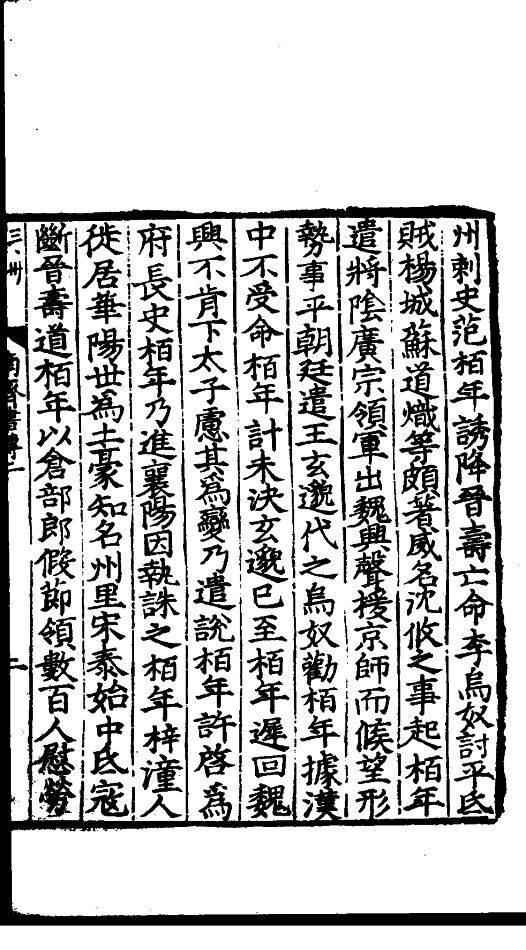 州刺史范栢年誘降晉壽亡命李烏奴討平氐
賊楊城蘇道熾等頗著威名沈攸之事起栢年
遣將陰廣宗領軍出魏興聲援京師而候望形
勢事平朝廷遣王玄邈代之烏奴勸栢年據漢
中不受命栢年計未決玄邈已至栢年遲回魏
興不肯下太子慮其為變乃遣說栢年許啓為
府長史栢年乃進襄陽因執誅之栢年梓潼人
徙居華陽世為土豪知名州里宋泰始中氐寇
斷晉壽道栢年以倉部郎假節領數百人慰勞
二